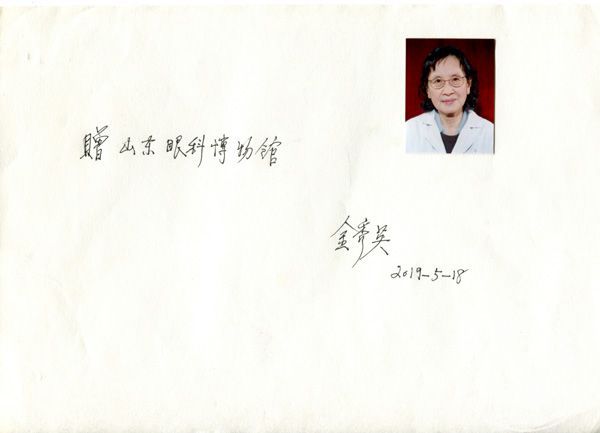 贈 山东眼科博物館
金秀英
2019-5-18